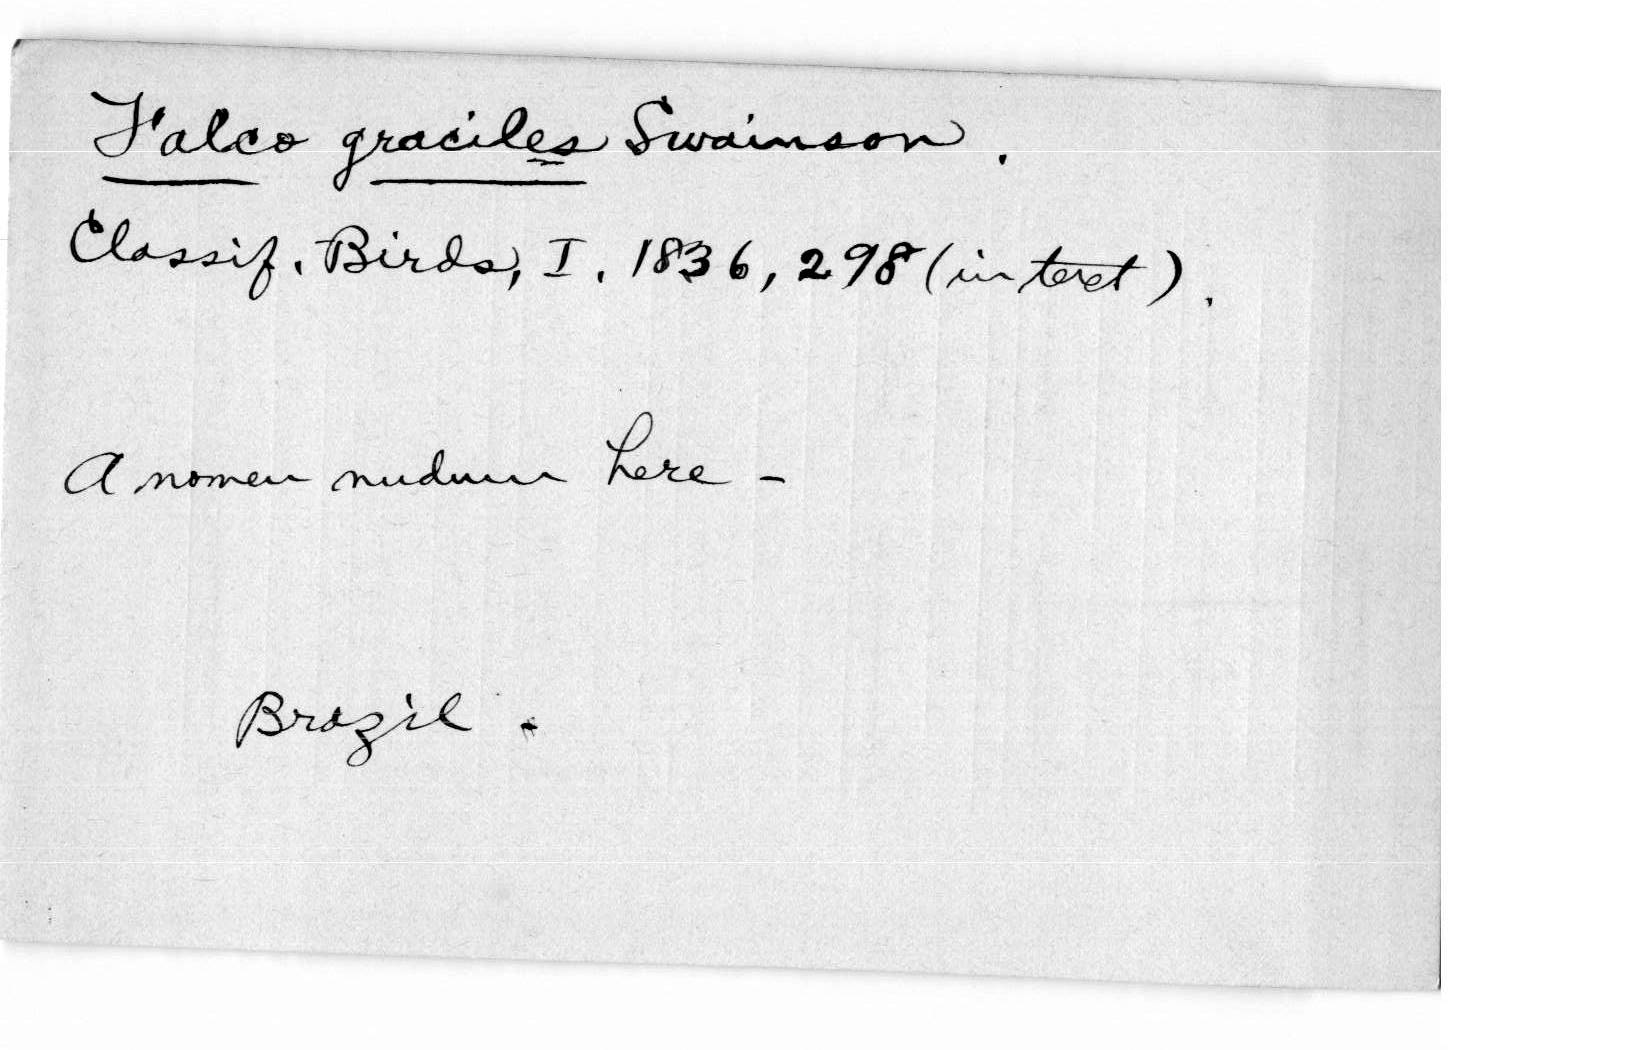 Falco graciles Swainson.
Classif. Birds, I. 1836, 298 (in text).
A nomen nudum here -
Brazil.